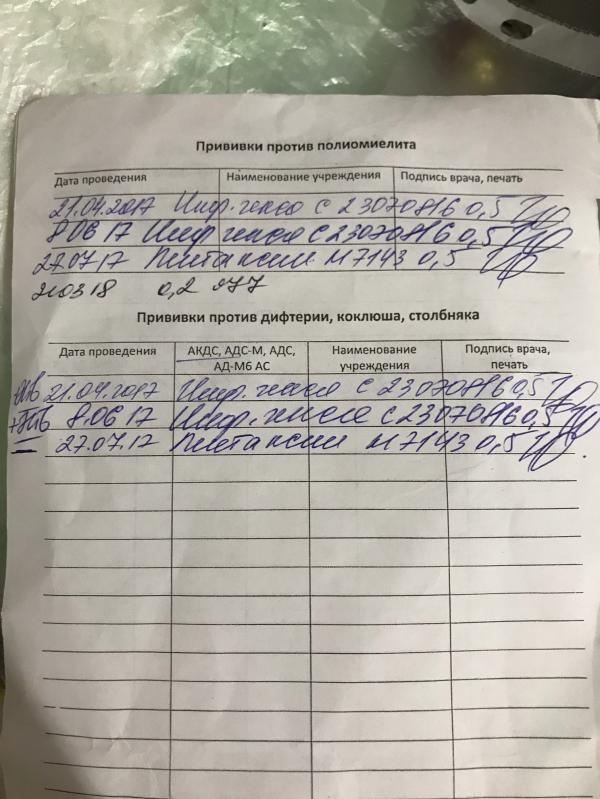 Прививки против полиомиелита
Дата проведения Наименование учреждения Подпись врача, печать
21.04.2017 Инф. гекса С 23070816 0,5
8.06 17 Инф гекса С 23070816 0,5
27.07.17 Пентаксим М7143 0,5
210318 0,2
Прививки против дифтерии, коклюша, столбняка
Дата проведения АКДС, АДС-М, АДС, АД-М6 АС Наименование учреждения Подпись врача, печать
21.04.2017 Инф. гекса С 23070816 0,5
8.06 17 Инф. гекса С 23070816 0,5
27.07.17 Пентаксим М7143 0,5